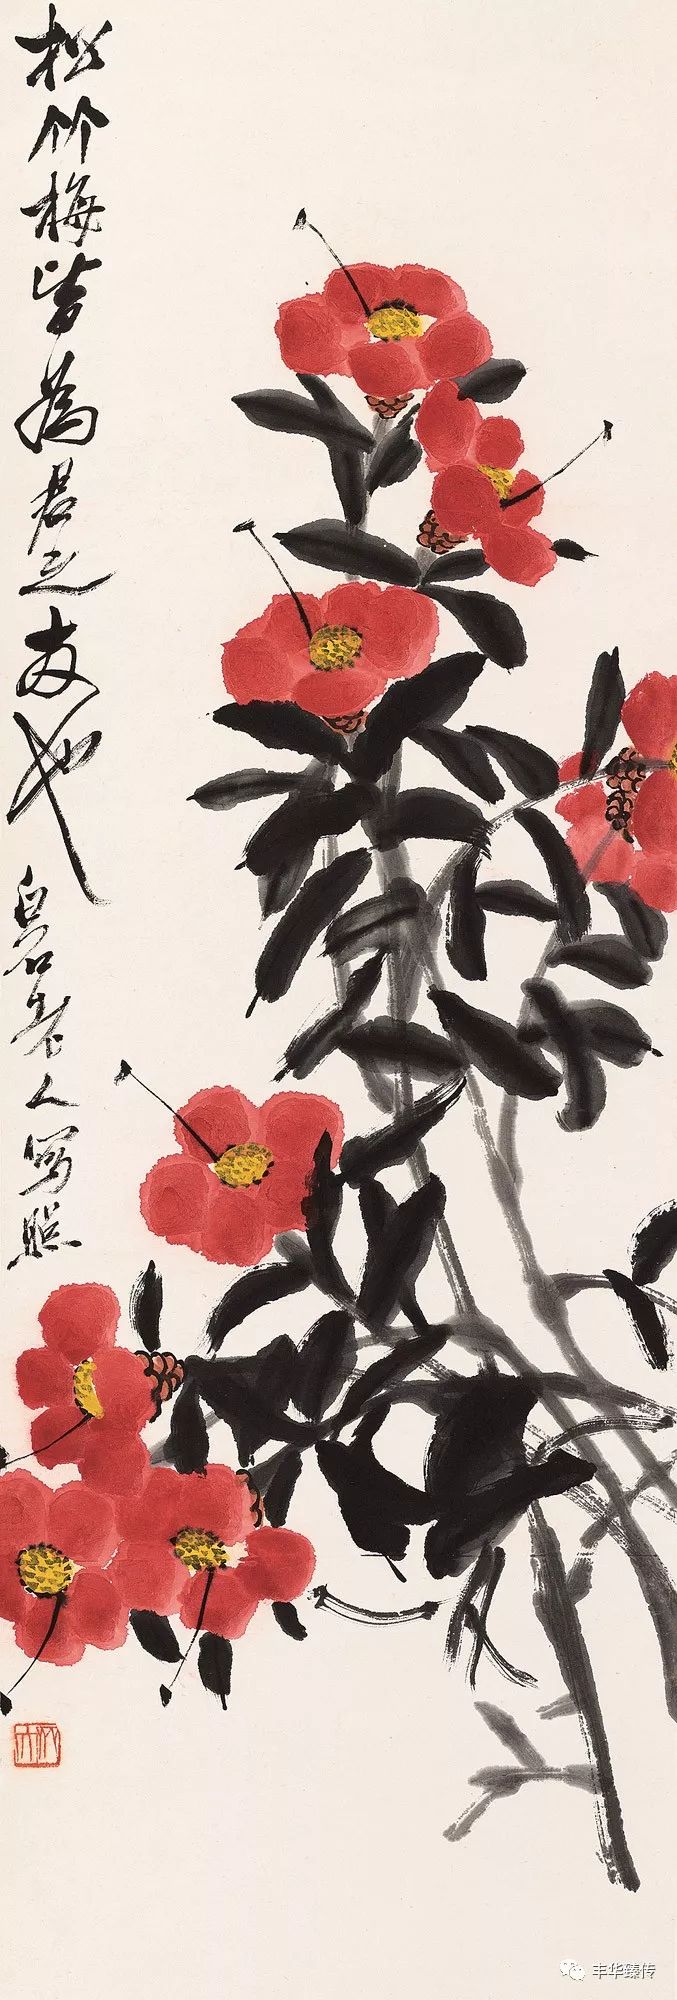 松竹梅皆為君之友也
白石老人寫照
丰华臻传